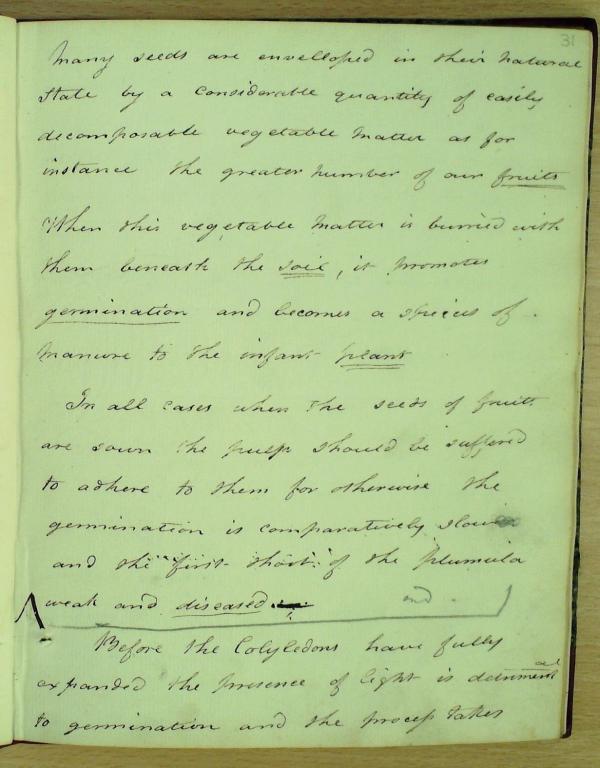 31
Many seeds are envelloped in their natural
State by a considerable quantity of easily
decomposable vegetable matter as for
instance the greater number of our fruits
When this vegetable matter is burried with
them beneath the soil, it promotes
germination and becomes a species of
manure to the infant plant
In all cases when the seeds of fruit
are sown the pulp should be suffered
to adhere to them for otherwise the
germination is comparatively slow
and the first shoot of the plumula
weak and diseased. end
Before the Cotyledons have fully
expanded the presence of light is detrimental
to germination and the process takes